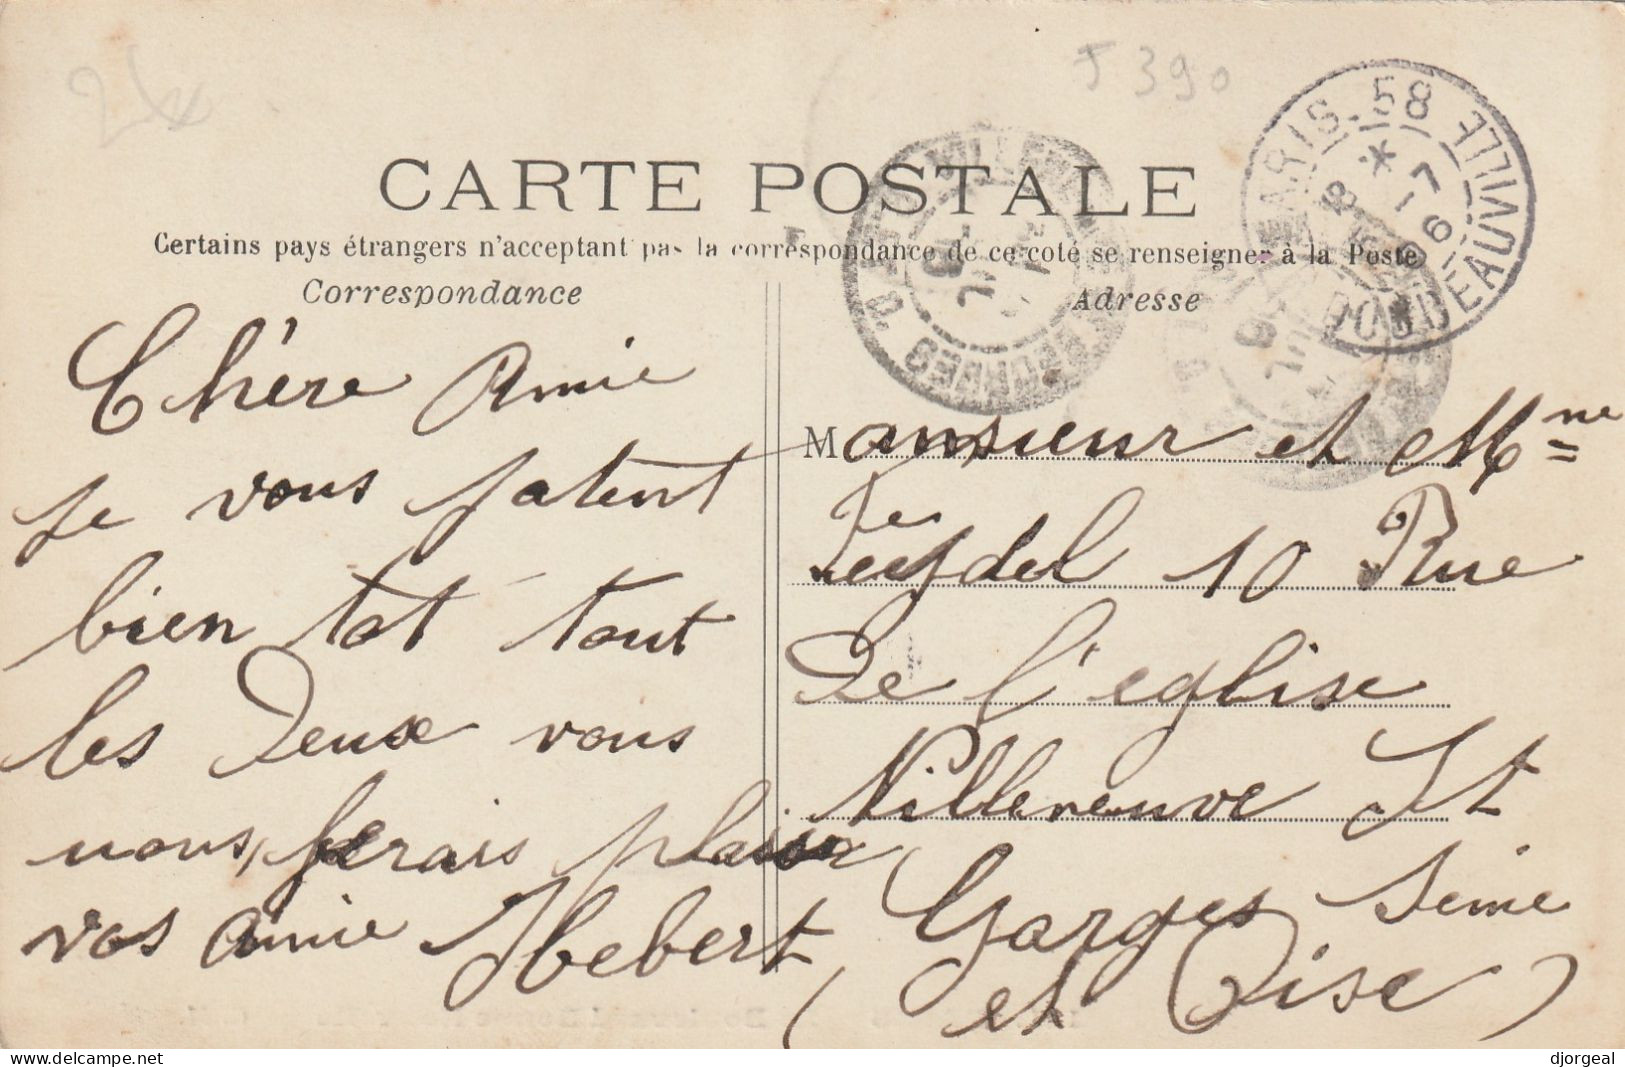 J 390
PARIS. 58 * R. POUB BEAUVILLE
CARTE POSTALE
Certains pays étrangers n'acceptant pas la correspondance de ce coté se renseigner à la Poste
Correspondance
Adresse
Chère Amie
je vous
bien tot tout
les Deux vous
nous ferais plaisir
vos Amie Hebert
Monsieur et Mme
10 Rue
De l'église
Villeneuve St
Gorges Seine
(et Oise)
delcampe.net
djorgeal